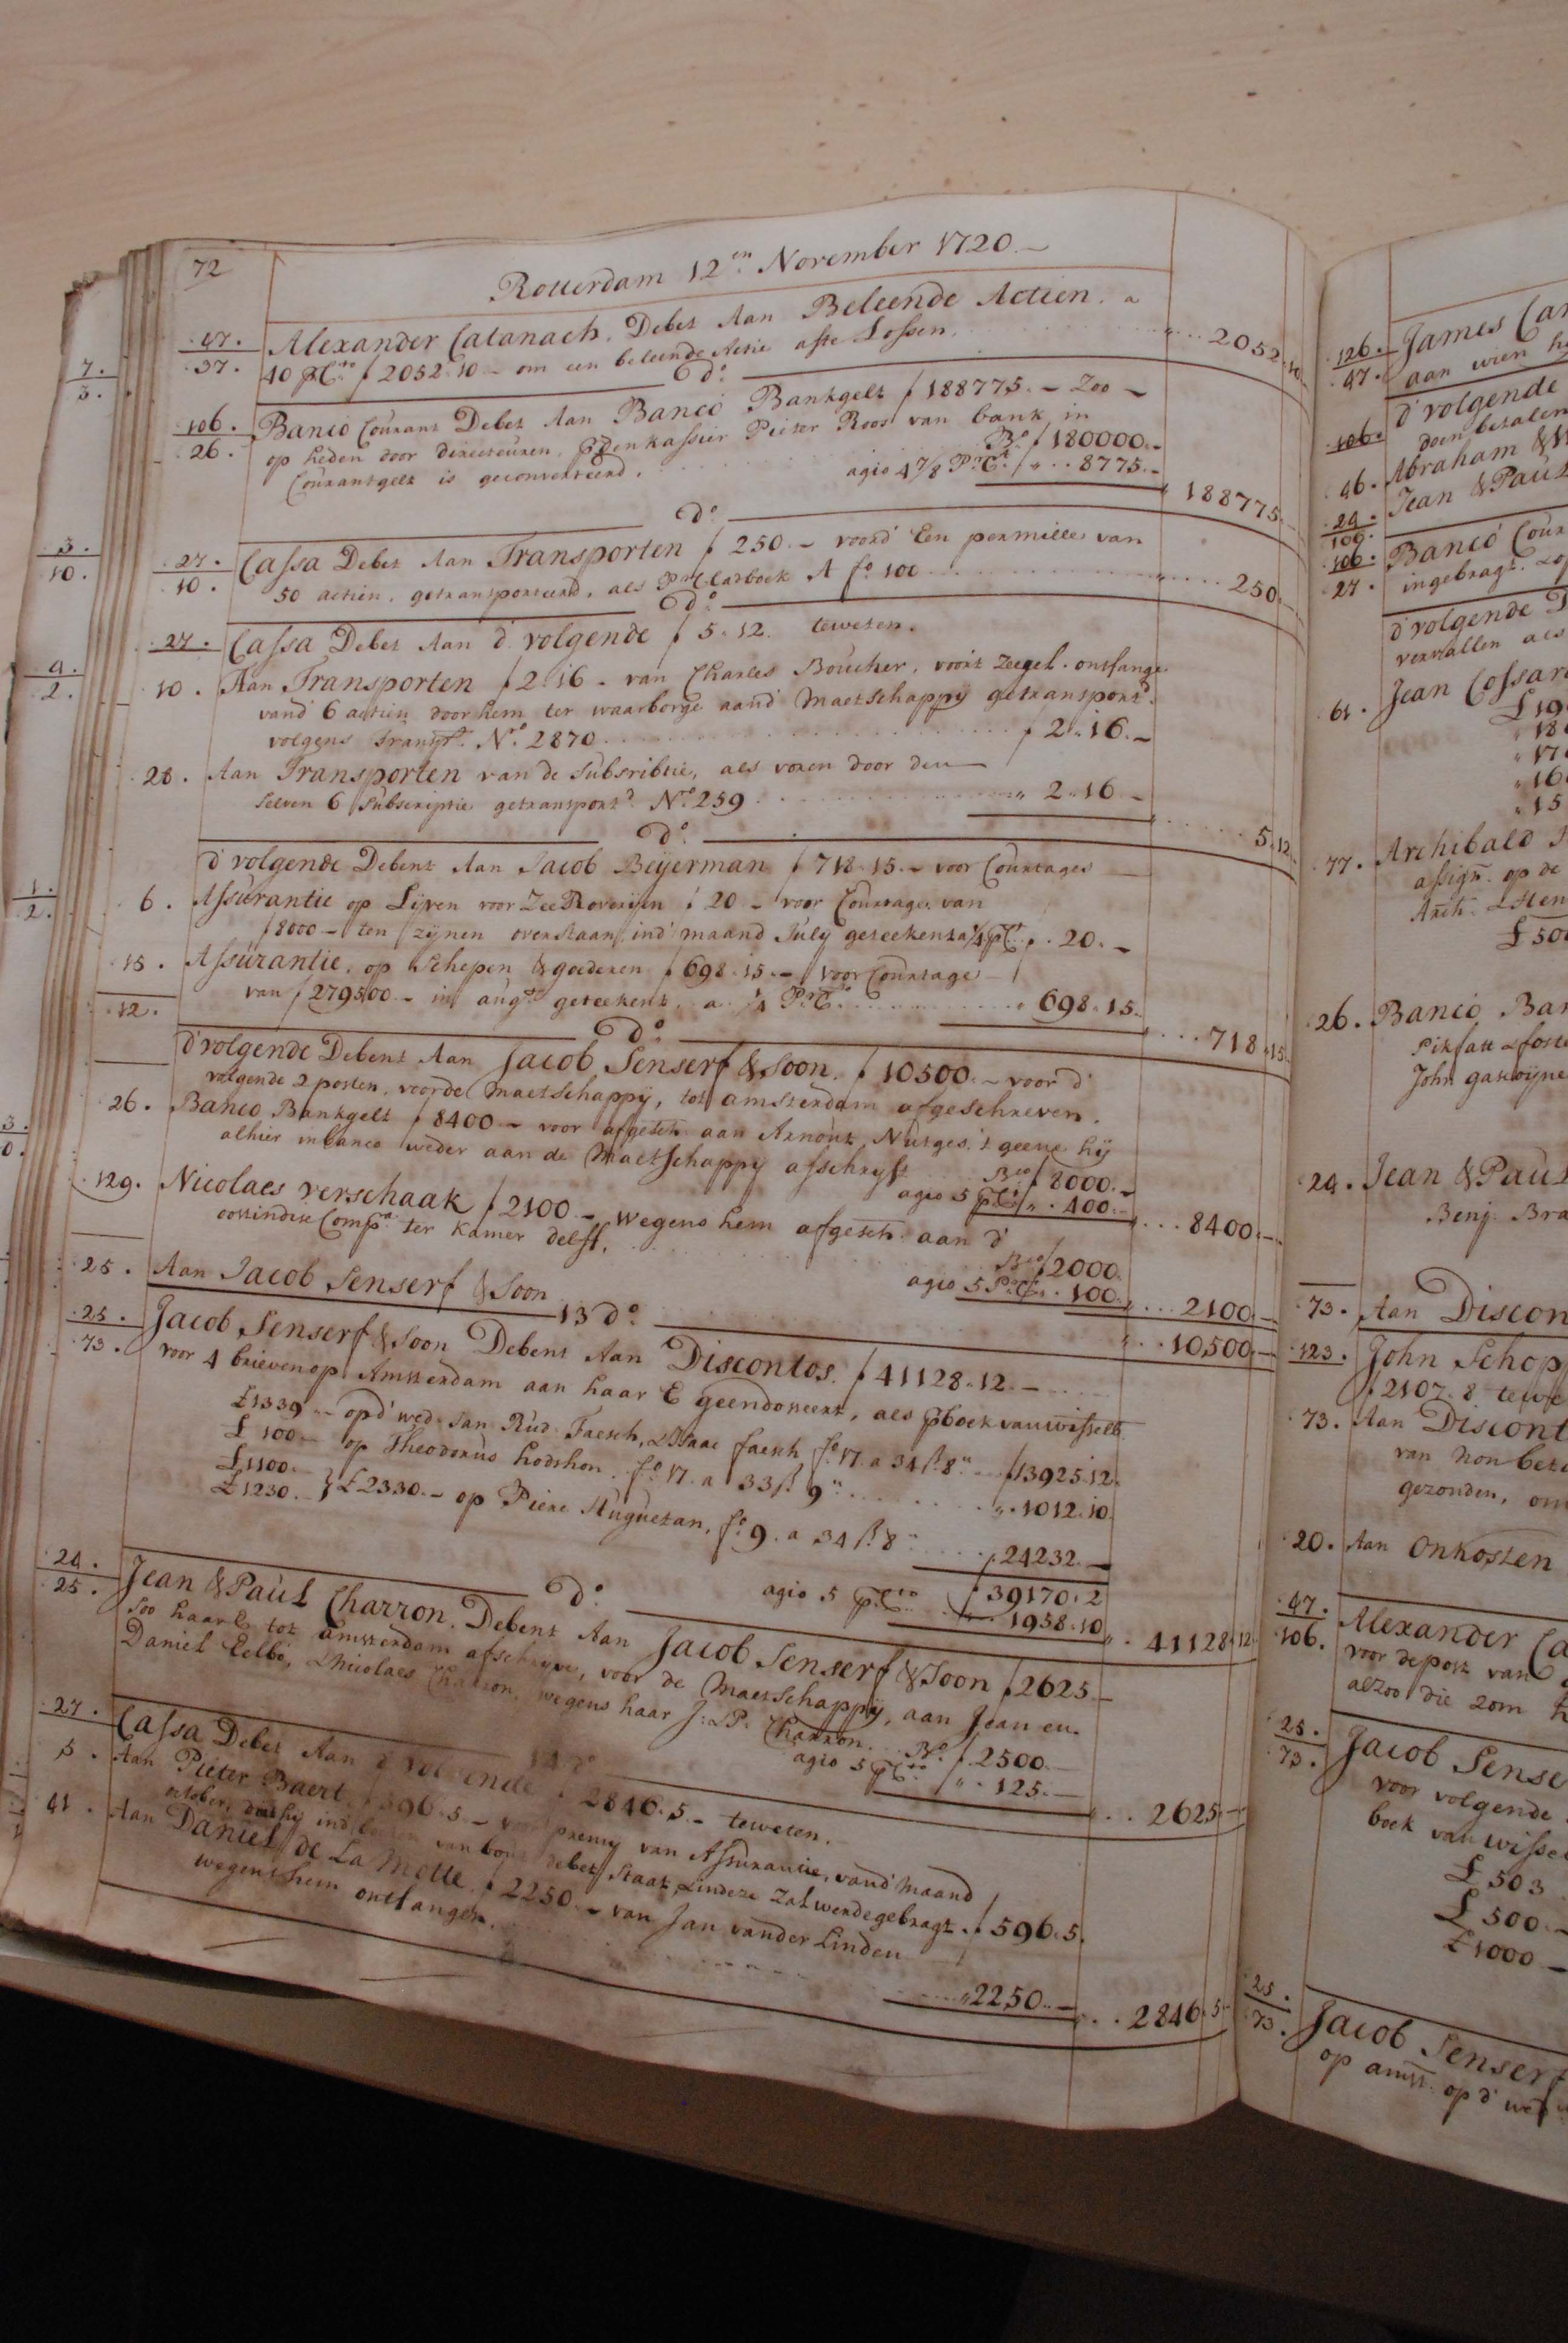 72
Rotterdam 12en November 1720.
47. Alexander Catanach. Debet Aan Beleende Actien. a
37. 40 pCto ƒ 2052.10 - om een beleende Actie afte Lossen. 2052.10
Do
106. Banco Courant Debet Aan Banco Bankgelt ƒ 188775.- Zoo -
26. op heden door directeuren, Pieter Roos van bank in
Courantgelt is geconverteerd. Bco ƒ 180000.-
agio 4 7/8 PrCt. ƒ 8775.-
188775.-
Do
27. Cassa Debet Aan Transporten ƒ 250.- voord' Een permilles van
10. 50 actien, getransporteerd, als Pr Cladboek A fo 100 250.-
Do
27. Cassa Debet Aan d' volgende ƒ 5.12. teweten.
10. Aan Transporten ƒ 2.16.- van Charles Boucher, voort Zeegel ontfange
vand' 6 actien door hem ter waarborge aand' Maetschappy getransportd.
volgens No. 2870 ƒ 2.16.-
28. Aan Transporten van de Subsribtie, als voren door den
selven 6 Subscriptie getransportd. No. 259 2.16.-
5.12.
Do
d' volgende Debent Aan Jacob Beyerman ƒ 718.15.- voor Courtages
6. Assurantie op Lijven voor ZeeRoverijen ƒ 20 - voor Courtage van
ƒ 8000 - ten zijnen overstaan ind' maand July geteekent a 1/4 pCt. 20.-
15. Assurantie, op Schepen & goederen ƒ 698.15.- voor Courtage
van ƒ 279500.- in augo. geteekent, a 1/4 PrCo. 698.15.
12. 718.15
Do
d' volgende Debent Aan Jacob Senserf & Soon. ƒ 10500.- voor d'
volgende 2 posten, voorde Maetschappy, tot amsterdam afgeschreven.
26. Banco Bankgelt ƒ 8400.- voor afgesch. aan Arnout Nutges, 't geene hij
alhier in banco weder aan de Maetschappy afschryft Bco ƒ 8000.-
agio 5 pCt. 400.-
8400.-
129. Nicolaes verschaak ƒ 2100.- wegens hem afgesch. aan d'
oostindise Compa. ter Kamer delft. Bco ƒ 2000.
agio 5 PrCt. 100.
2100.-
25. Aan Jacob Senserf & Soon 10500.-
13 Do
25. Jacob Senserf & Soon Debent Aan Discontos. ƒ 41128.12.-
73. voor 4 brieven op Amsterdam aan haar E geendosseert, als pboek van wissels
£1339.- op d' wed. Jan Rud. Faesch, & Isaac faesch fo. 17. a 34 ß. 8 ƒ 13925.12.
£ 100.- op Theodorus hodshon. fo. 17. a 33 ß. 9 1012.10
£1100.-
£1230. } £2330.- op Piere Huguetan, fo. 9. a 34 ß. 8 24232.-
ƒ 39170.2
agio 5 pCto. 1958.10
41128.12
Do
24. Jean & Paul Charron. Debent Aan Jacob Senserf & Soon ƒ 2625.-
25. soo haar E tot amsterdam afschryve, voor de Maetschappy, aan Jean en.
Daniel Eelbo, & Nicolaes Charron, wegens haar J: & P: Charron. Bo. ƒ 2500.-
agio 5 pCto. 125.-
2625.-
14 Do
27. Cassa Debet Aan d' volgende ƒ 2846.5.- teweten.
5. Aan Pieter Baert ƒ 596.5.- voor premy van Assurantie, vand' Maand
october, debet staat, & indeze Zal werde gebragt. ƒ 596.5.
41. Aan Daniel de La Motte ƒ 2250.- van Jan vander Linden
wegens hem ontfangen. 2250.-
2846.5
7.
3.
3.
10.
4.
2.
1.
2.
126. James
47. aan wien
106. d' volgende
doen betalen
46. Abraham &
24. Jean & Paul
106.
106. Banco Cour
27. ingebragt.
d' volgende
vervallen als
61. Jean Cossar
77. Archibald
assign. op de
£ 50
26. Banco Ban
John gascoijne
24. Jean & Paul
Benj. Bra
73. Aan Discon
123. John Schop
ƒ 2107.8 tewe
73. Aan Discont
van non beta
gezonden, om
20. Aan Onkosten
47. Alexander Ca
106. voor de post van
alzoo die zom
25. Jacob Sense
73. voor volgende
boek van wissel
£ 503
£ 500.-
£1000 -
25. Jacob Senserf
73. op amst. op d' wed